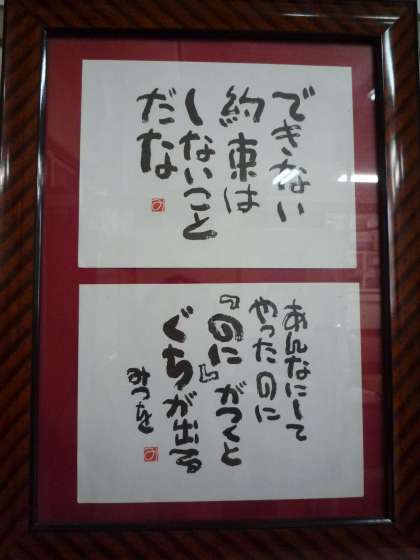 できない
約束は
しないこと
だな
あんなにして
やったのに
『のに』がつくと
ぐちが出る
みつを